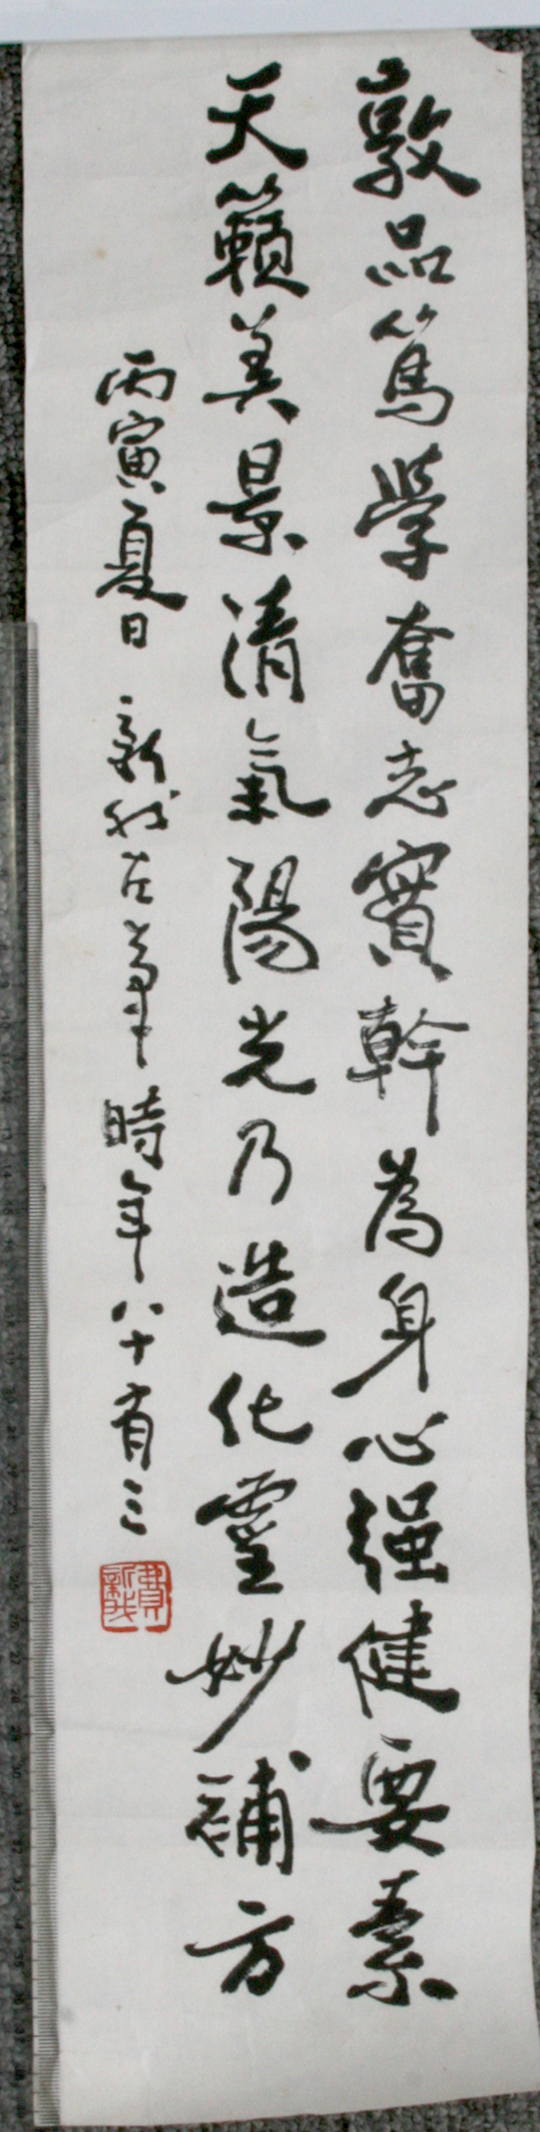 敦品篤學奮志實幹為身心强健要素
天籟美景清氣陽光乃造化靈妙補方
丙寅夏日 新我左筆時年八十有三
費新我